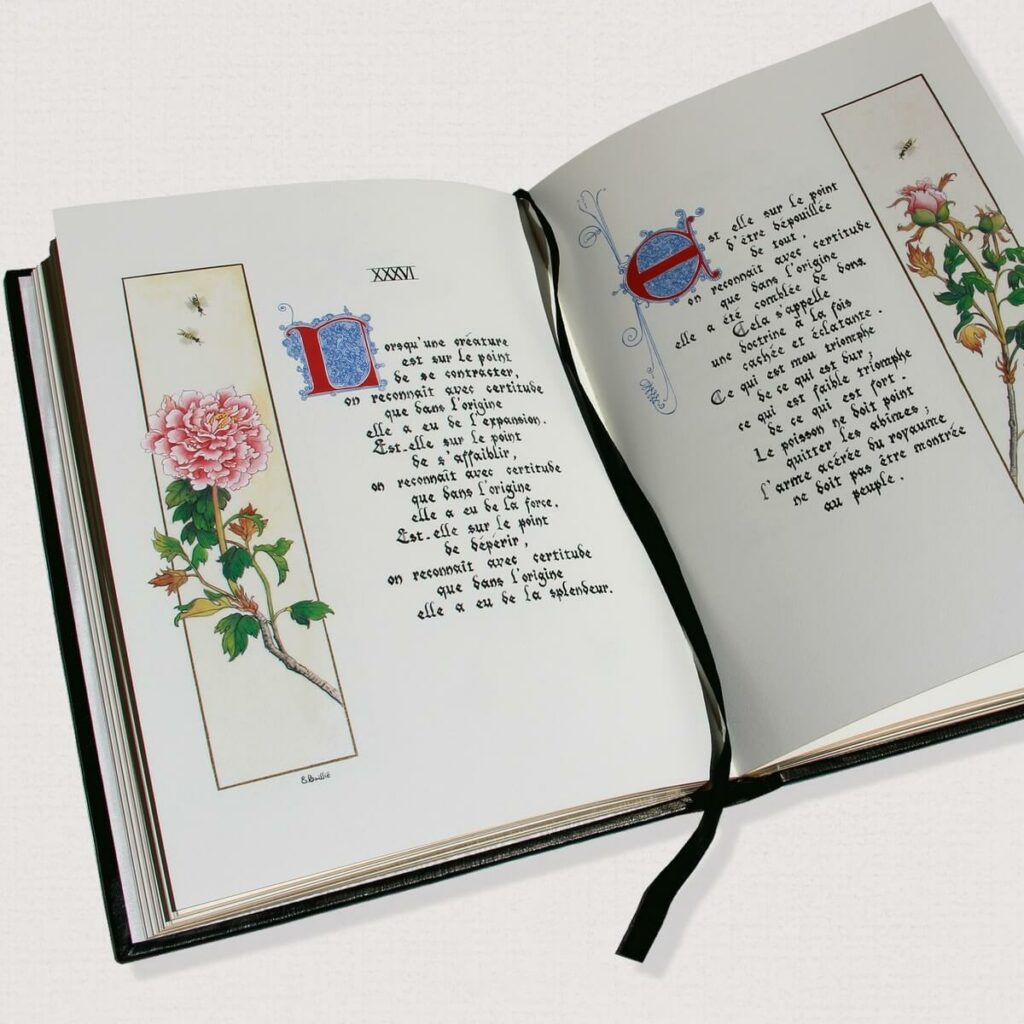 XXXVI
Lorsqu'une créature
est sur le point
de se contracter,
on reconnaît avec certitude
que dans l'origine
elle a eu de l'expansion.
Est-elle sur le point
de s'affaiblir,
on reconnaît avec certitude
que dans l'origine
elle a eu de la force.
Est-elle sur le point
de dépérir,
on reconnaît avec certitude
que dans l'origine
elle a eu de la splendeur.
Est elle sur le point
d'être dépouillée
de tout,
on reconnaît avec certitude
que dans l'origine
elle a été comblée de dons.
Cela s'appelle
une doctrine à la fois
cachée et éclatante.
Ce qui est mou triomphe
de ce qui est dur;
ce qui est faible triomphe
de ce qui est fort.
Le poisson ne doit point
quitter les abîmes;
l'arme acérée du royaume
ne doit pas être montrée
au peuple.